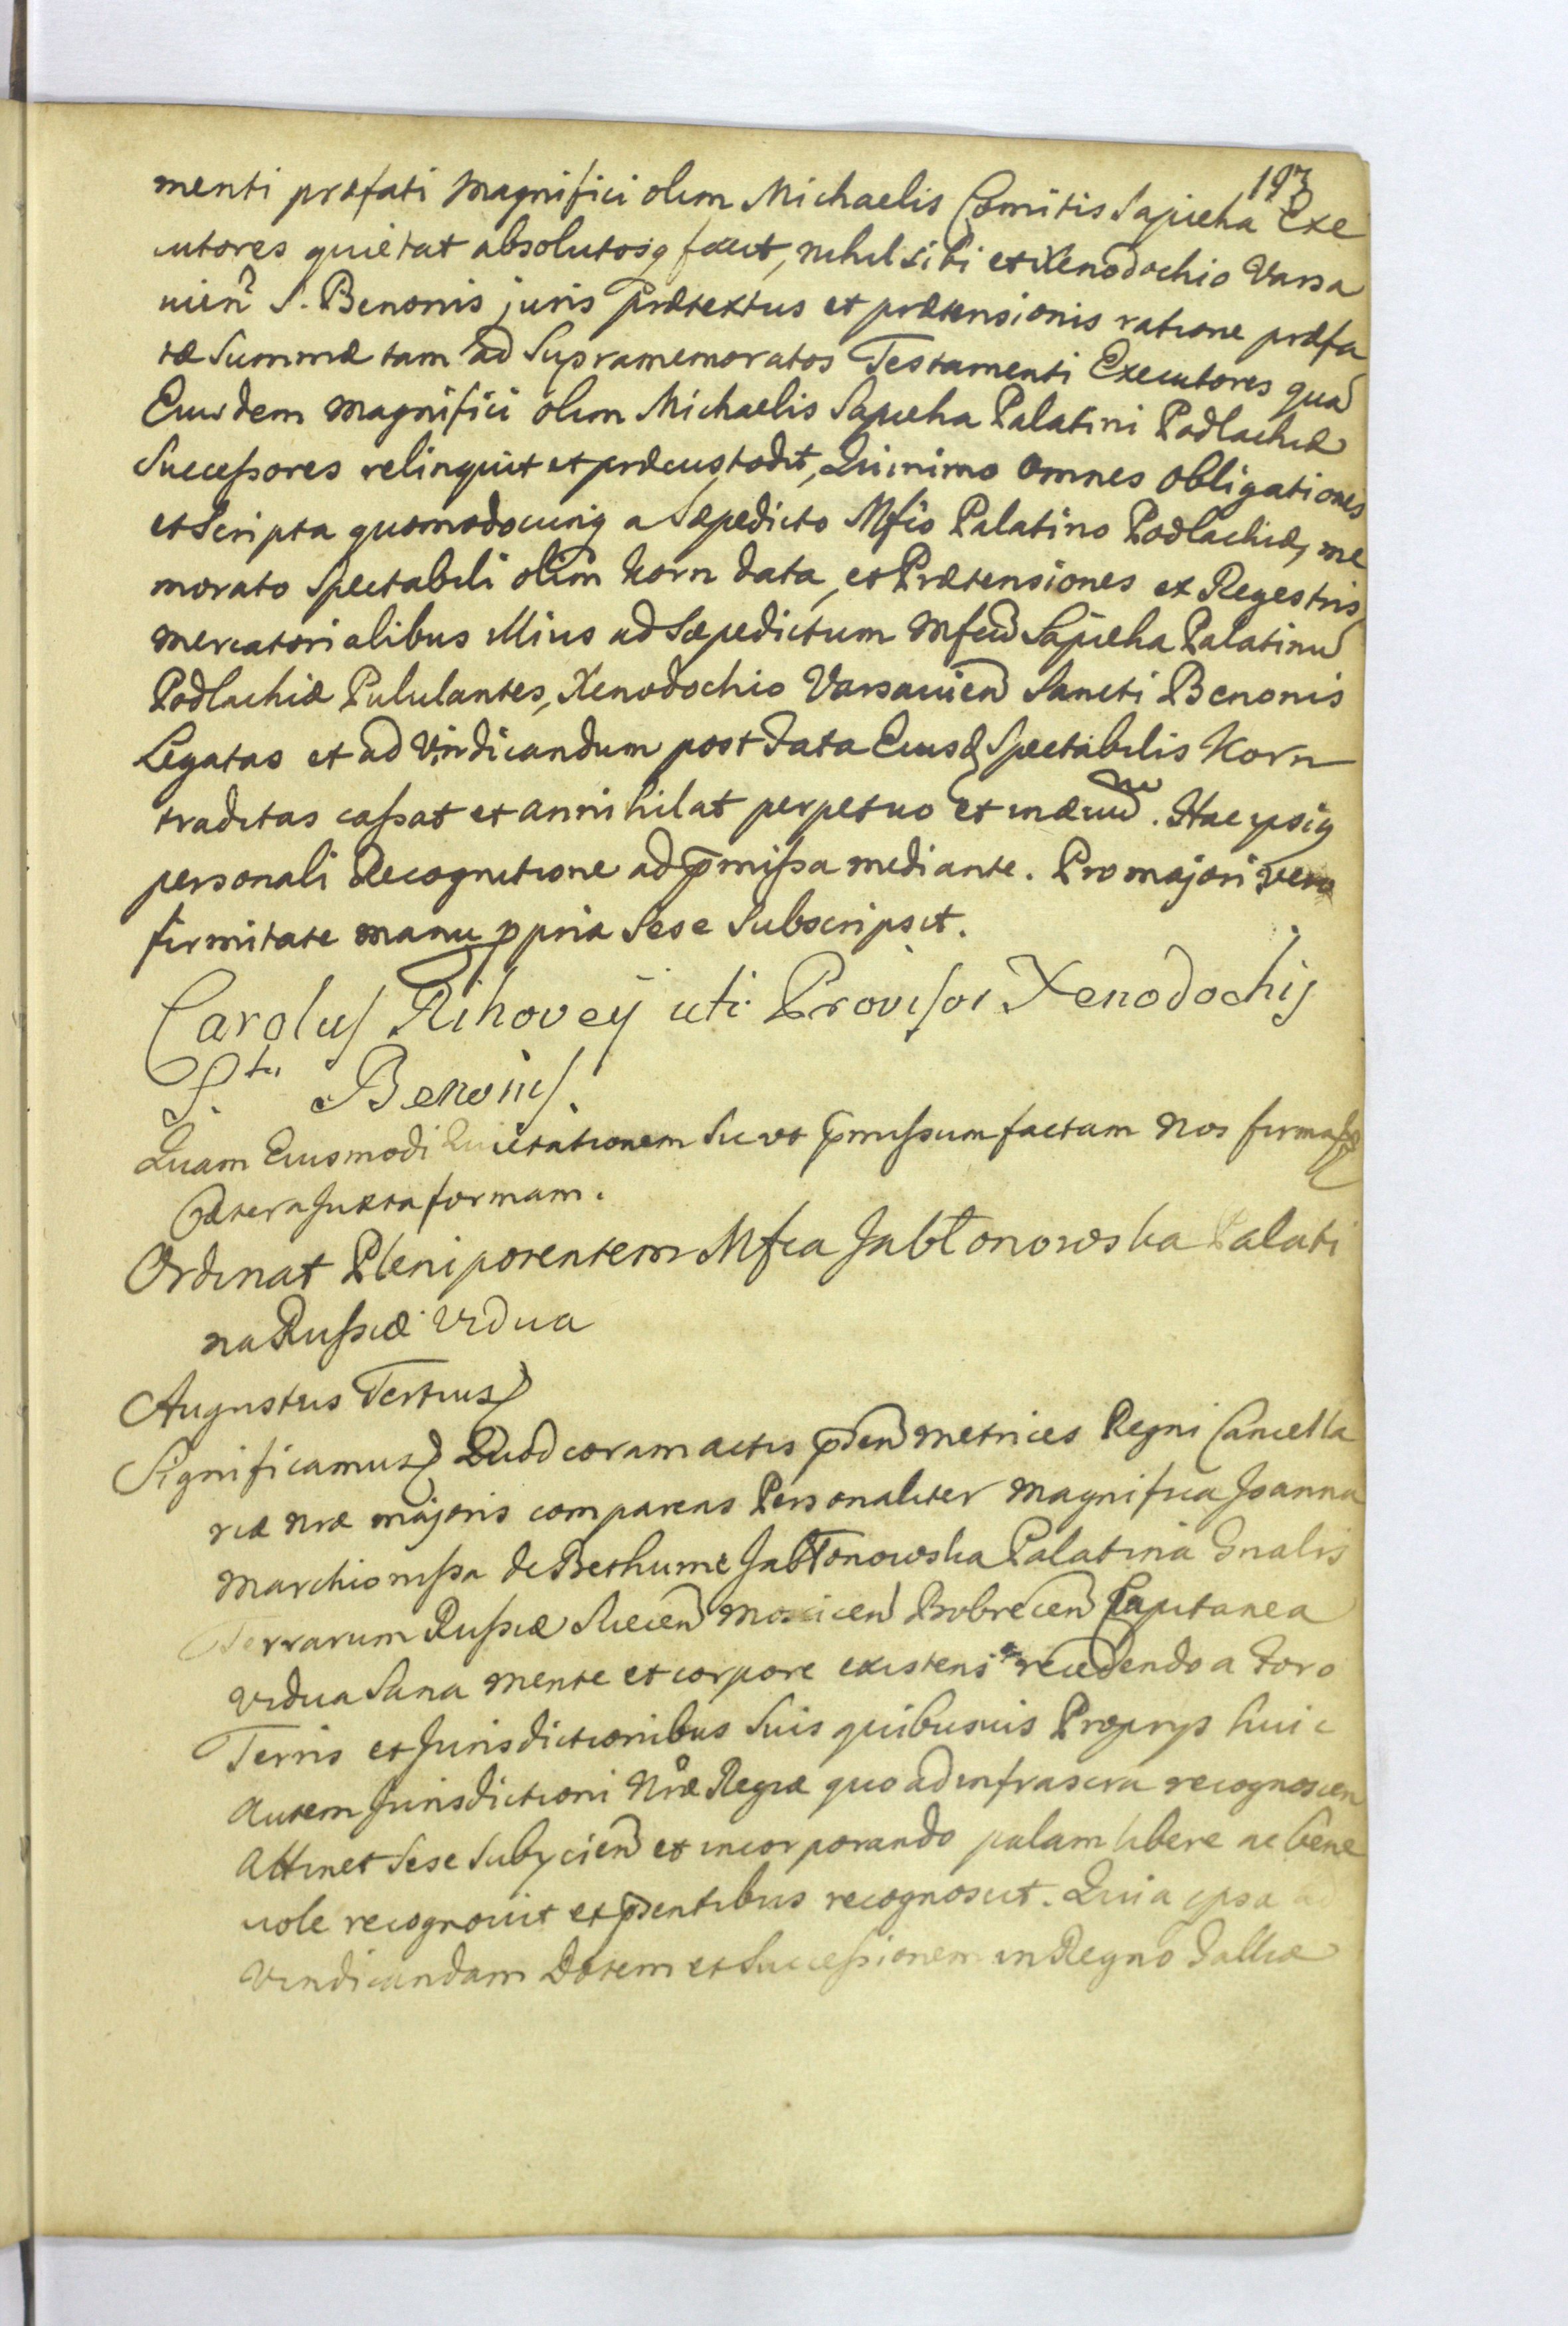 193
menti præfati Magnifici olim Michaelis Comitis Sapieha Exe
cutores quietat absolutosq facit, nihil sibi et Xenodochio Varsa
vien S. Benonis juris prætextus et prætensionis ratione præfa
tæ Summæ tam ad Supramemoratos Testamenti Executores qua
Eiusdem Magnifici olim Michaelis Sapieha Palatini Podlachiæ
Successores relinquit et præcustodit, Quinimo omnes obligationes
et Scripta quomodocunq a Sæpedicto Mfico Palatino Podlachiæ, me
morato Spectabili olim Korn data, et Prætensiones ex Regestris
Mercatorialibus illius ad Sæpedictum Mfcu Sapieha Palatinu
Podlachiæ Pululantes, Xenodochio Varsavien Sancti Benonis
Legatas et ad vindicandum post data Eiusd Spectabilis Korn
traditas cassat et annihilat perpetuo et in ævu. Hac ipsiq
personali Recognitione ad pmissa mediante. Pro majori vero
firmitate manu ppria Sese Subscripsit.
Carolus Rihovey uti Provisor Xenodochij
S.ti Benonis.
Quam Eiusmodi Quietationem Sic ut pmissum factam Nos
Cætera Juxta formam.
Ordinat Plenipotentem Mfca Jabłonowska Palati
na Russiæ Vidua
Augustus Tertius
Significamus Quod coram actis psen Metrices Regni Cancella
riæ Nræ majoris comparens Personaliter Magnifica Joanna
Marchionissa de Bethume Jabłonowska Palatina Gnalis
Terrarum Russiæ Bobrecen Capitanea
Vidua Sana mente et corpore existens recedendo a Foro
Terris et Jurisdictionibus Suis quibusvis Proprijs huic
autem Jurisdictioni Nræ Regiæ quo ad infrascra recognoscen
attinet Sese Subijcien et incorporando palam libere ac bene
vole recognovit et psentibus recognoscit. Quia ipsa ad
Vindicandam Dotem et Successionem in Regno Galliæ